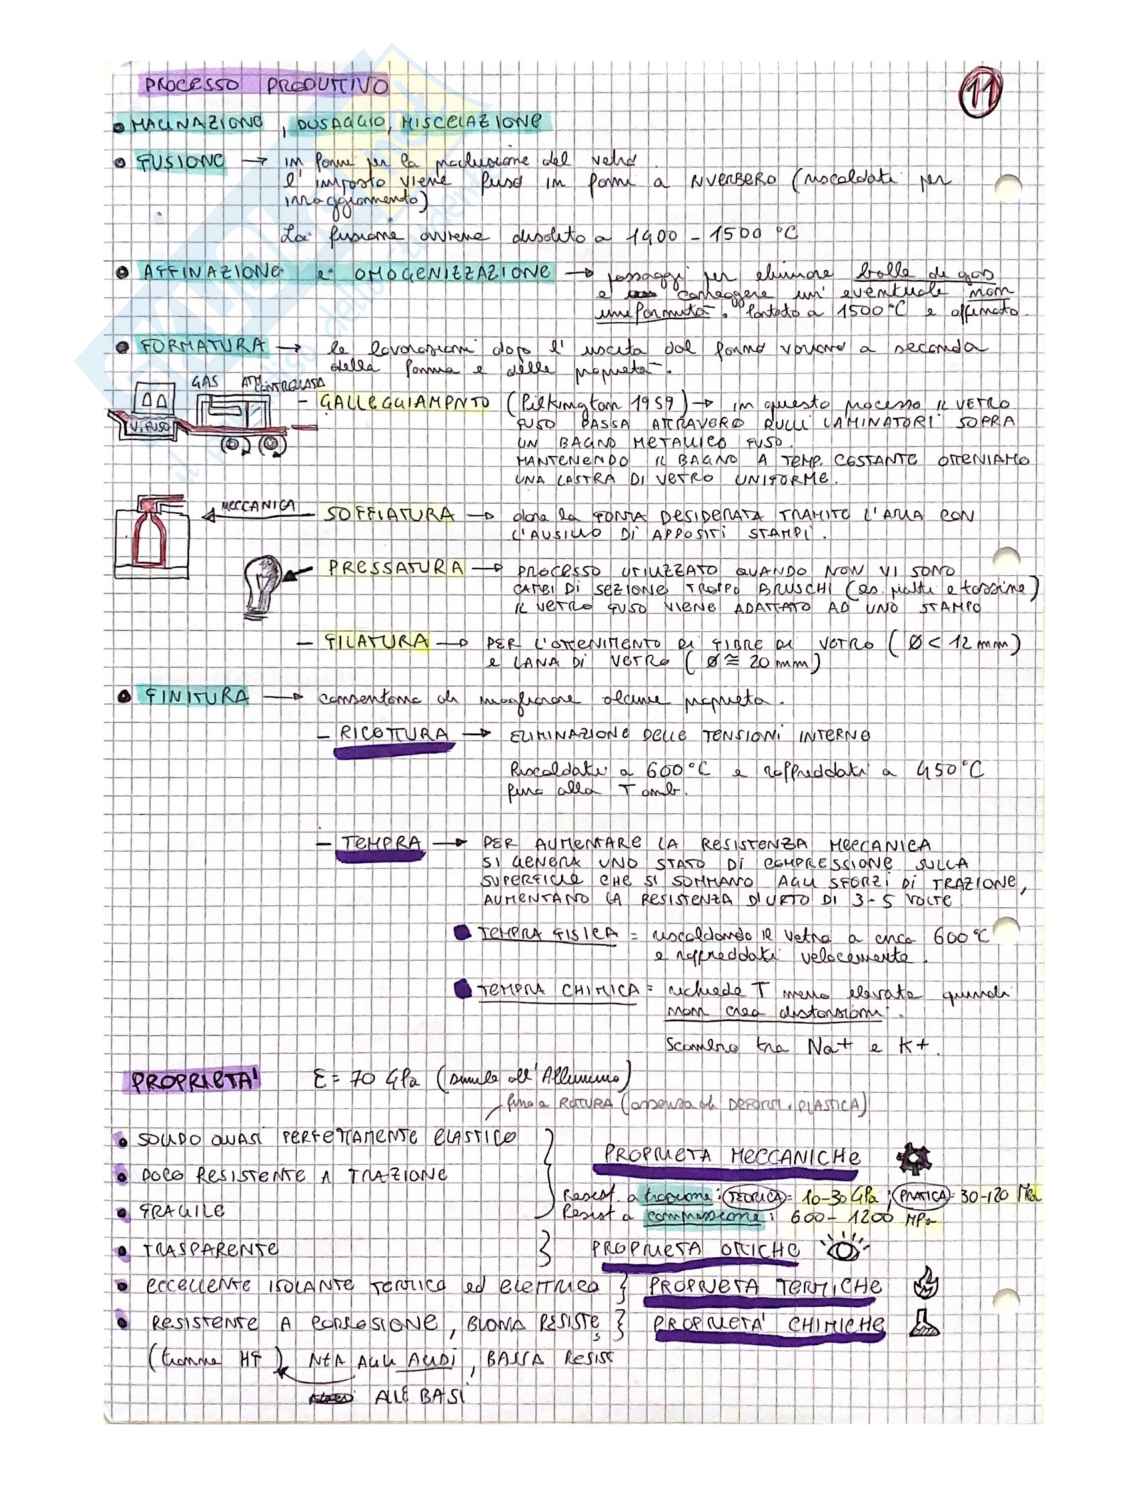 PROCESSO PRODUTTIVO
11
MACINAZIONE, DOSAGGIO, MISCELAZIONE
FUSIONE → in forni per la produzione del vetro.
l'imposto viene fuso in forni a RIVERBERO (riscaldati per
irraggiamento)
La fusione avviene di solito a 1400 - 1500 °C
AFFINAZIONE e OMOGENIZZAZIONE → passaggi per eliminare bolle di gas
e correggere un'eventuale non
uniformità. Portato a 1500°C e affinato.
FORMATURA → le lavorazioni dopo l'uscita dal forno variano a seconda
della forma e delle proprietà.
GAS ATM CONTROLLATA
V. FUSO
- GALLEGGIAMENTO (Pilkington 1959) → in questo processo IL VETRO
FUSO PASSA ATTRAVERSO RULLI LAMINATORI SOPRA
UN BAGNO METALLICO FUSO.
MANTENENDO IL BAGNO A TEMP. COSTANTE OTTENIAMO
UNA LASTRA DI VETRO UNIFORME.
MECCANICA
- SOFFIATURA → dona la FORMA DESIDERATA TRAMITE L'ARIA CON
L'AUSILIO DI APPOSITI STAMPI.
- PRESSATURA → PROCESSO UTILIZZATO QUANDO NON VI SONO
CAMBI DI SEZIONE TROPPO BRUSCHI (es. piatti e tazzine)
IL VETRO FUSO VIENE ADATTATO AD UNO STAMPO
- FILATURA → PER L'OTTENIMENTO DI FIBRE DI VETRO (Ø < 12 mm)
e LANA DI VETRO (Ø ≅ 20 mm)
FINITURA → consentono di migliorare alcune proprietà.
- RICOTTURA → ELIMINAZIONE DELLE TENSIONI INTERNE
Riscaldati a 600°C e raffreddati a 450°C
fino alla T amb.
- TEMPRA → PER AUMENTARE LA RESISTENZA MECCANICA
SI GENERA UNO STATO DI COMPRESSIONE SULLA
SUPERFICIE CHE SI SOMMANO AGLI SFORZI DI TRAZIONE,
AUMENTANO LA RESISTENZA D'URTO DI 3-5 VOLTE
TEMPRA FISICA = riscaldando il vetro a circa 600°C
e raffreddati velocemente.
TEMPRA CHIMICA = richiede T meno elevate quindi
non crea distorsioni.
Scambio tra Na+ e K+.
PROPRIETA' E = 70 GPa (simile all'Alluminio)
fino a ROTTURA (assenza di DEFORM. PLASTICA)
SOLIDO QUASI PERFETTAMENTE ELASTICO
PROPRIETA MECCANICHE
POCO RESISTENTE A TRAZIONE
Resist. a trazione: (TEORICA) = 10-30 GPa; (PRATICA) = 30-120 MPa
FRAGILE
Resist a compressione: 600 - 1200 MPa
TRASPARENTE } PROPRIETA OTTICHE
ECCELLENTE ISOLANTE TERMICO ed ELETTRICO } PROPRIETA TERMICHE
RESISTENTE A CORROSIONE, BUONA RESISTE } PROPRIETA' CHIMICHE
(tranne HF) NZA AGLI ACIDI, BASSA RESIST
ALLE BASI